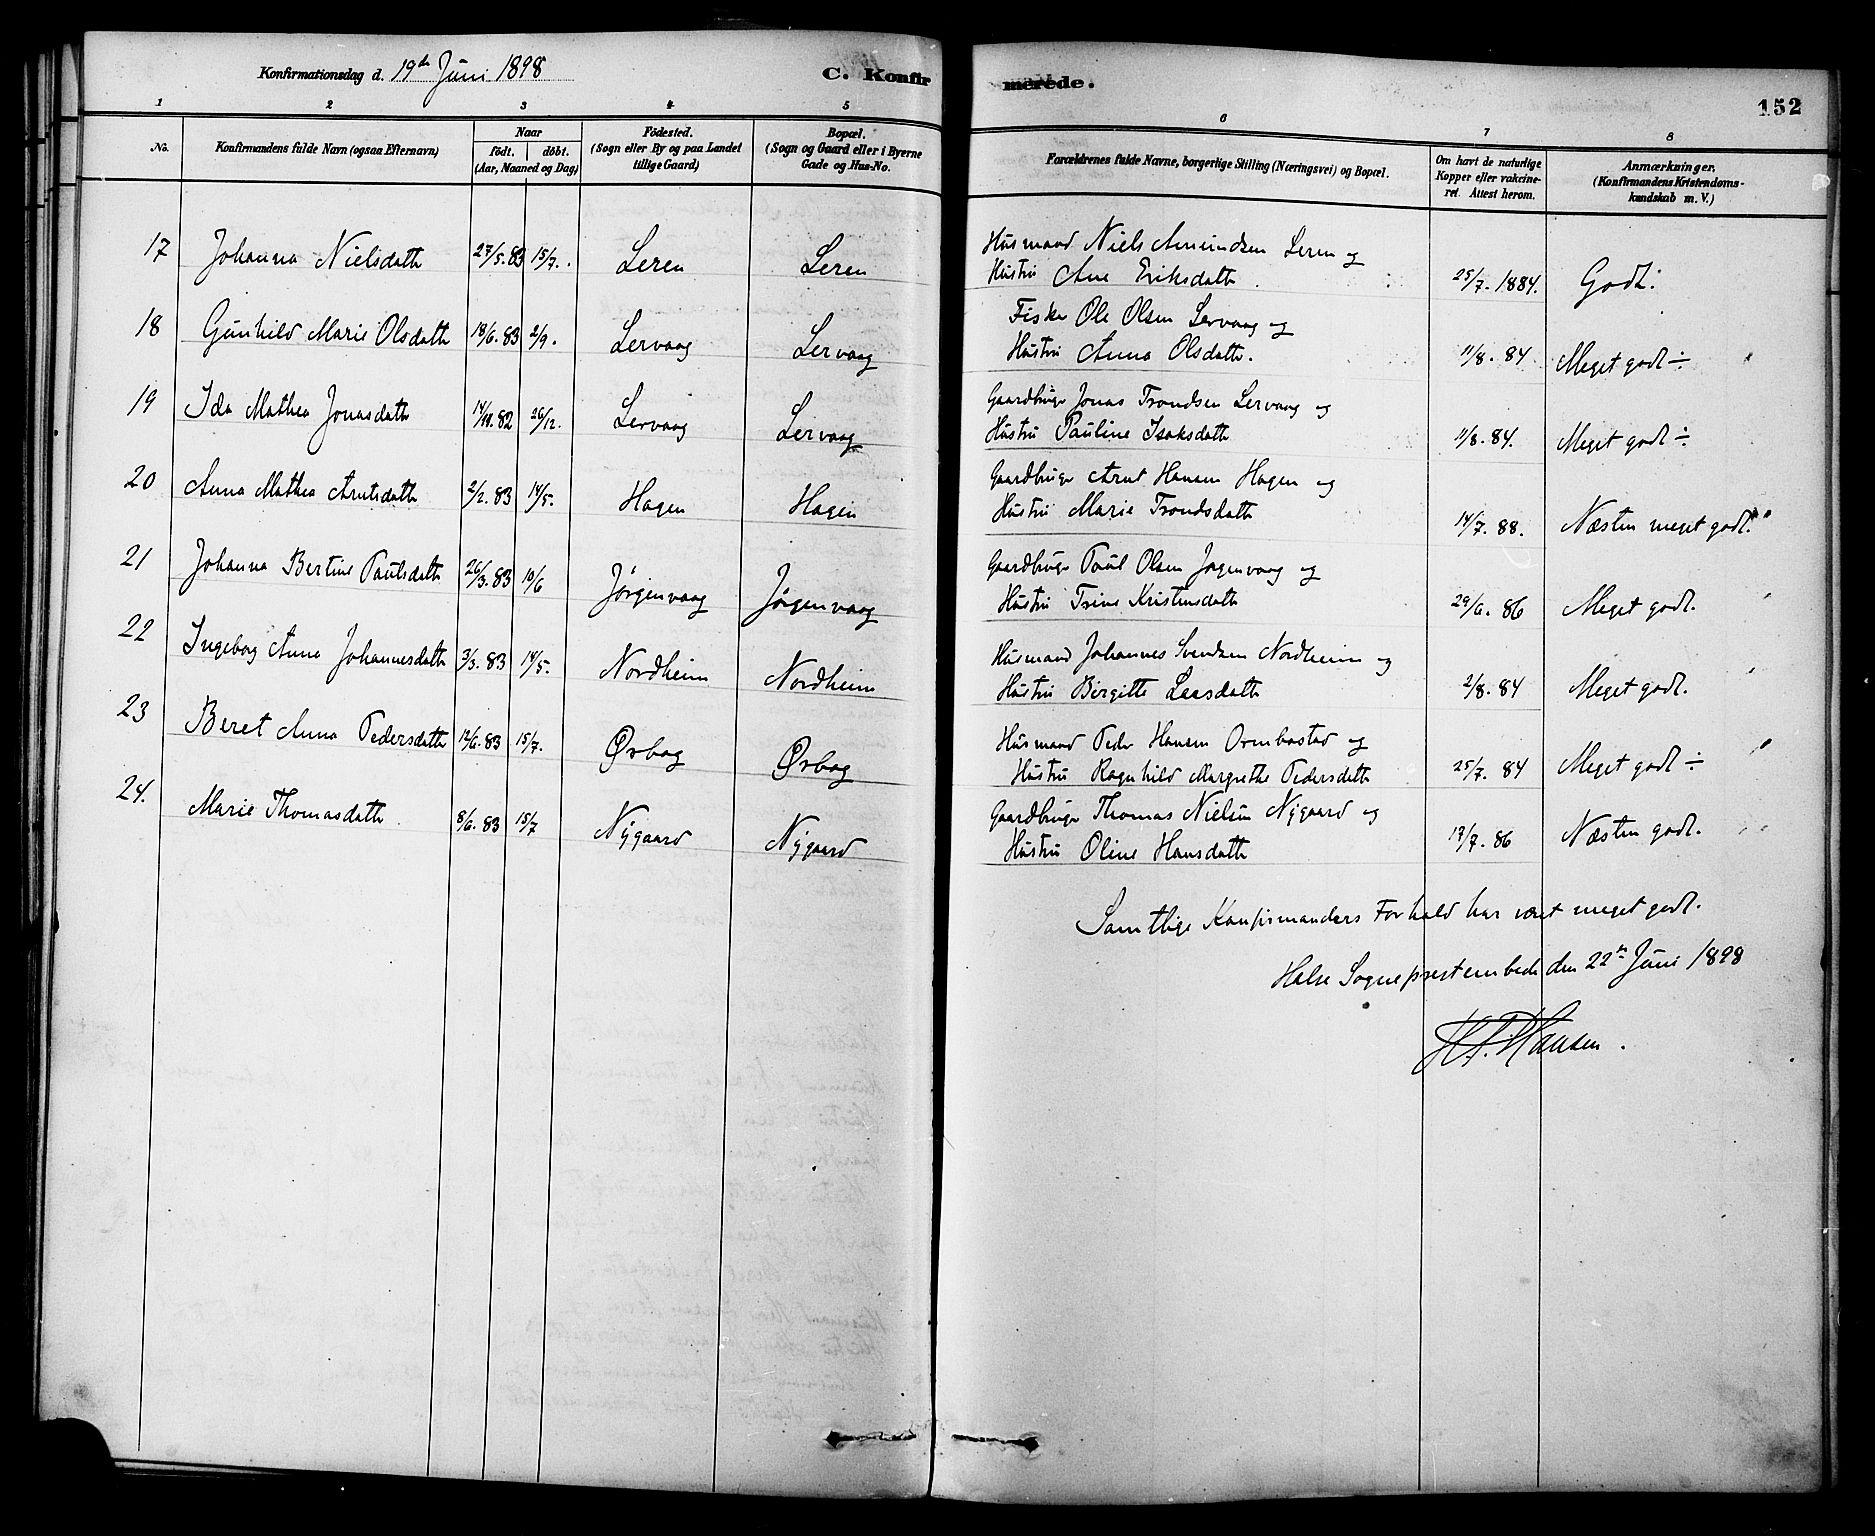 Konfirmationsdag d. 19de Juni 1898
C. Konfirmerede.
152
1 2 3 4 5 6 7 8
No.
Konfirmandens fulde Navn (ogsaa Efternavn)
Naar
födt. döbt.
(Aar, Maaned og Dag)
Födested.
(Sogn eller By og paa Landet
tillige Gaard)
Bopæl.
(Sogn og Gaard eller i Byerne
Gade og Hus-No.
Forældrenes fulde Navne, borgerlige Stilling (Næringsvei) og Bopæl.
Om havt de naturlige
Kopper eller vakcine-
ret. Attest herom.
Anmærkninger.
(Konfirmandens Kristendoms-
kundskab m. V.)
17 Johanna Nielsdatte 27/5.83 15/7. Leren Leren
Husmand Niels Amundsen Leren og
Hustru Ane Eriksdatte. 25/7. 1884. Godt.
18 Gunhild Marie Olsdatte 18/6.83 2/9. Lervaag Lervaag
Fisker Ole Olsen Lervaag og
Hustru Anna Olsdatte. 11/8. 84 Meget godt ÷
19 Ida Mathea Jonasdatte 14/11.82 26/12. Lervaag Lervaag
Gaardbruger Jonas Trondsen Lervaag og
Hustru Pauline Isaksdatte 11/8. 84. Meget godt ÷
20 Anna Mathea Arntsdatte 2/2.83 14/5. Hagen Hagen
Gaardbruger Arnt Hansen Hagen og
Hustru Marie Trondsdatte 14/7. 88. Næsten meget godt.
21 Johanna Bertine Paulsdatte 26/3.83 10/6 Jørgenvaag Jørgenvaag
Gaardbruger Paul Olsen Jørgenvaag og
Hustru Trine Kristensdatte 29/6. 86 Meget godt.
22 Ingeborg Anna Johannesdatte 3/3.83 14/5. Nordheim Nordheim
Husmand Johannes Svendsen Nordheim og
Hustru Birgitte Larsdatte 2/8. 84 Meget godt.
23 Beret Anna Pedersdatte 12/6.83 15/7. Ørbog Ørbog
Husmand Peder Hansen Ormbostad og
Hustru Ragnhild Margrethe Pedersdatte 25/7. 84 Meget godt ÷
24. Marie Thomasdatte. 8/6.83 15/7 Nygaard Nygaard
Gaardbruger Thomas Nielsen Nygaard og
Hustru Oline Hansdatte 17/7. 86 Næsten godt.
Samtlige Konfirmanders Forhold har været meget godt.
Halse Sogneprestembede den 22de Juni 1898
Hansen.